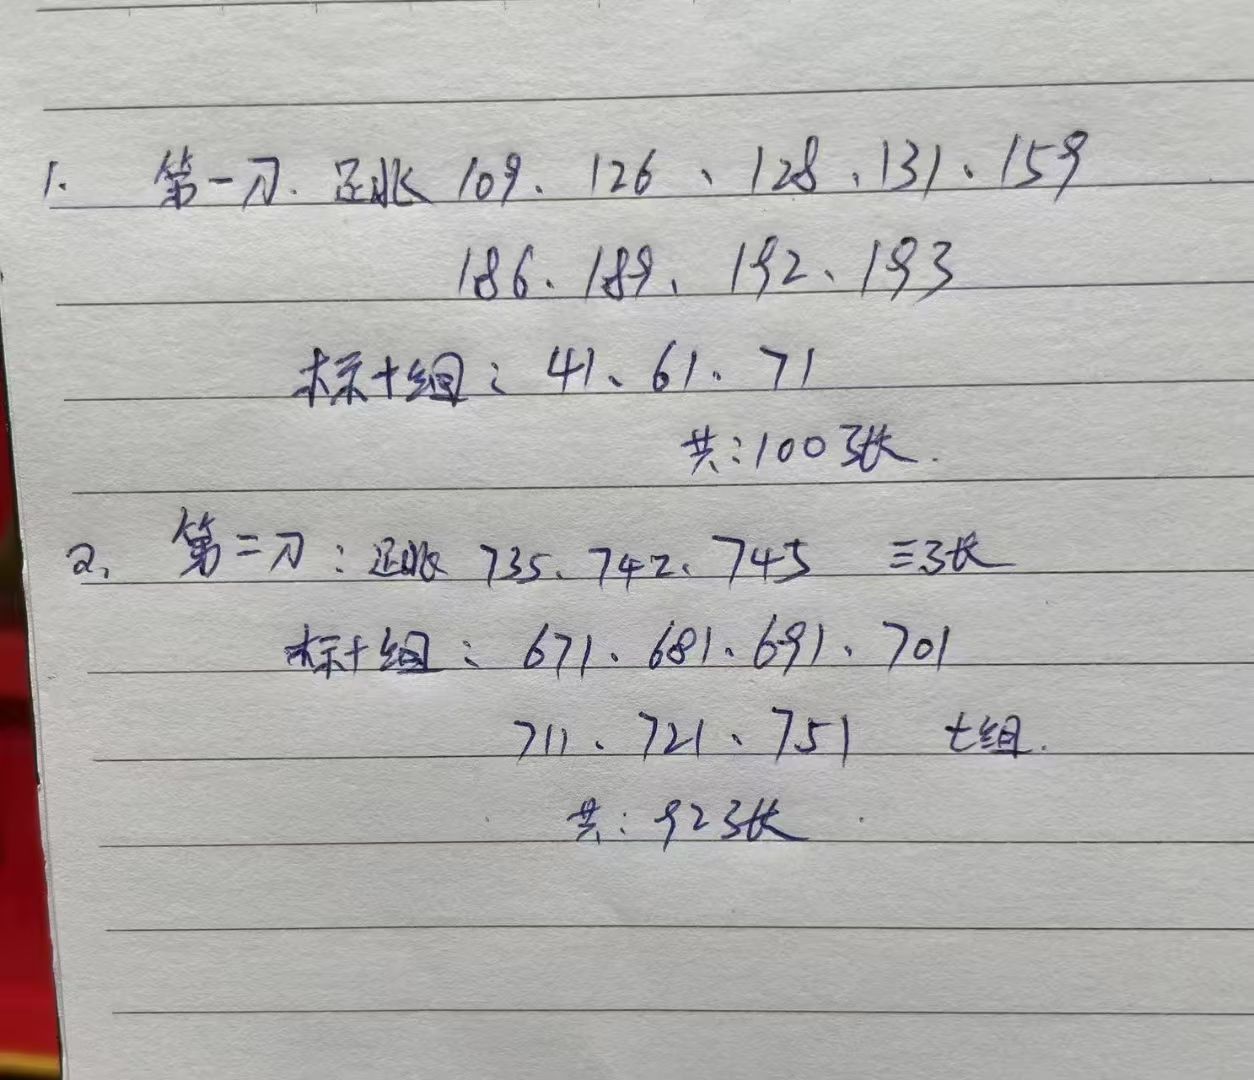 1. 第一刀. 足张 109、126、128、131、159
186、189、192、193
标十组：41、61、71
共：100张.
2、第二刀：足张 735、742、745 三张
标十组：671、681、691、701
711、721、751 七组.
共：92张